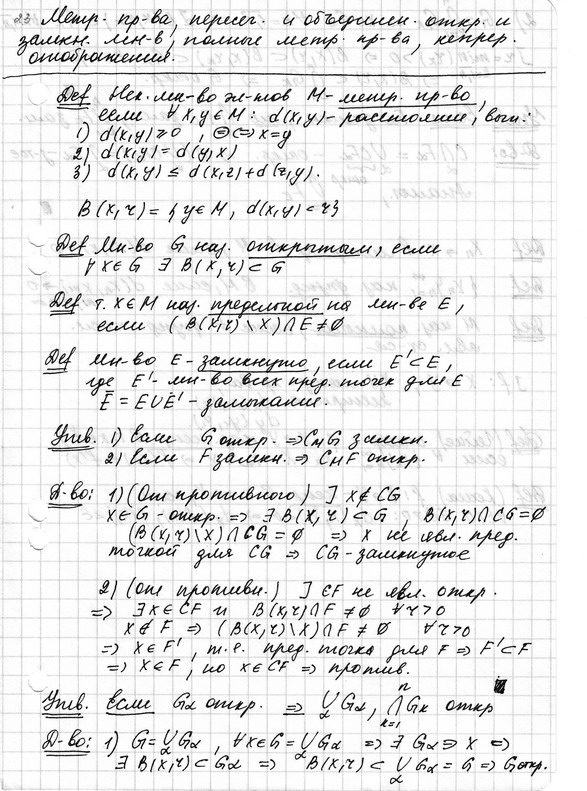 23 Метр. пр-ва, пересеч. и объединен. откр. и
замкн. мн-в, полные метр. пр-ва, непрер.
отображения.
Def Нек. мн-во эл-тов M - метр. пр-во,
если ∀ x,y ∈ M : d(x,y) - расстояние, вып.:
1) d(x,y) ≥ 0 , ⊜ ⇔ x=y
2) d(x,y) = d(y,x)
3) d(x,y) ≤ d(x,z) + d(z,y).
B(x,r) = { y ∈ M, d(x,y) < r }
Def Мн-во G наз. открытым, если
∀ x ∈ G ∃ B(x,r) ⊂ G
Def т. x ∈ M наз. предельной на мн-ве E,
если (B(x,r) \ x) ∩ E ≠ ∅
Def Мн-во E - замкнуто, если E' ⊂ E,
где E' - мн-во всех пред. точек для E
E̅ = E ∪ E' - замыкание.
Утв. 1) Если G откр. ⇒ C_M G замкн.
2) Если F замкн. ⇒ C_M F откр.
Д-во: 1) (От противного) ] x ∉ CG
x ∈ G - откр. ⇒ ∃ B(x,r) ⊂ G , B(x,r) ∩ CG = ∅
(B(x,r) \ x) ∩ CG = ∅ ⇒ x не явл. пред.
точкой для CG ⇒ CG - замкнутое
2) (от противн.) ] CF не явл. откр.
⇒ ∃ x ∈ CF и B(x,r) ∩ F ≠ ∅ ∀ r > 0
x ∉ F ⇒ (B(x,r) \ x) ∩ F ≠ ∅ ∀ r > 0
⇒ x ∈ F', т.е. пред. точка для F ⇒ F' ⊂ F
⇒ x ∈ F, но x ∈ CF ⇒ против.
Утв. Если Gα откр. ⇒ ∪_α Gα, ∩_{k=1}^{n} G_k откр
Д-во: 1) G = ∪_α Gα , ∀ x ∈ G = ∪_α Gα ⇒ ∃ Gα ∋ x ⇒
∃ B(x,r) ⊂ Gα ⇒ B(x,r) ⊂ ∪_α Gα = G ⇒ G откр.